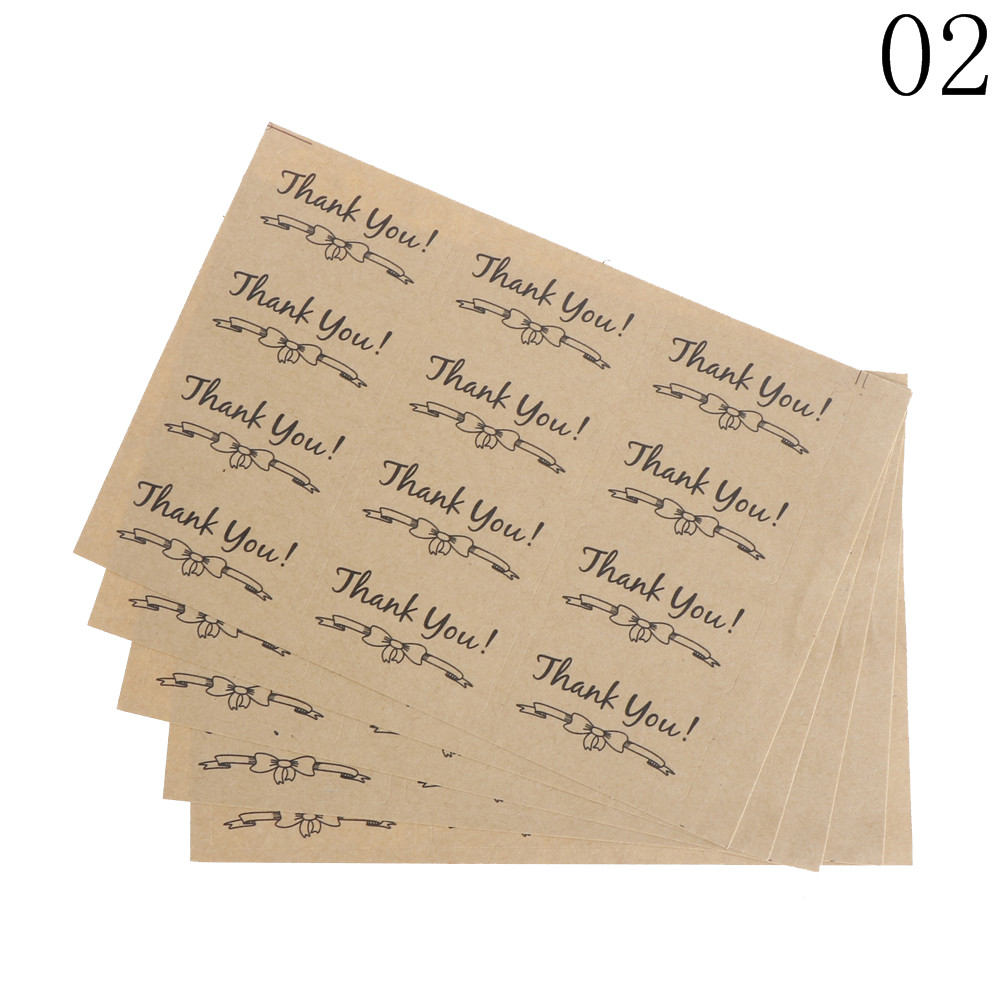 02
Thank You!
Thank You!
Thank You!
Thank You!
Thank You!
Thank You!
Thank You!
Thank You!
Thank You!
Thank You!
Thank You!
Thank You!